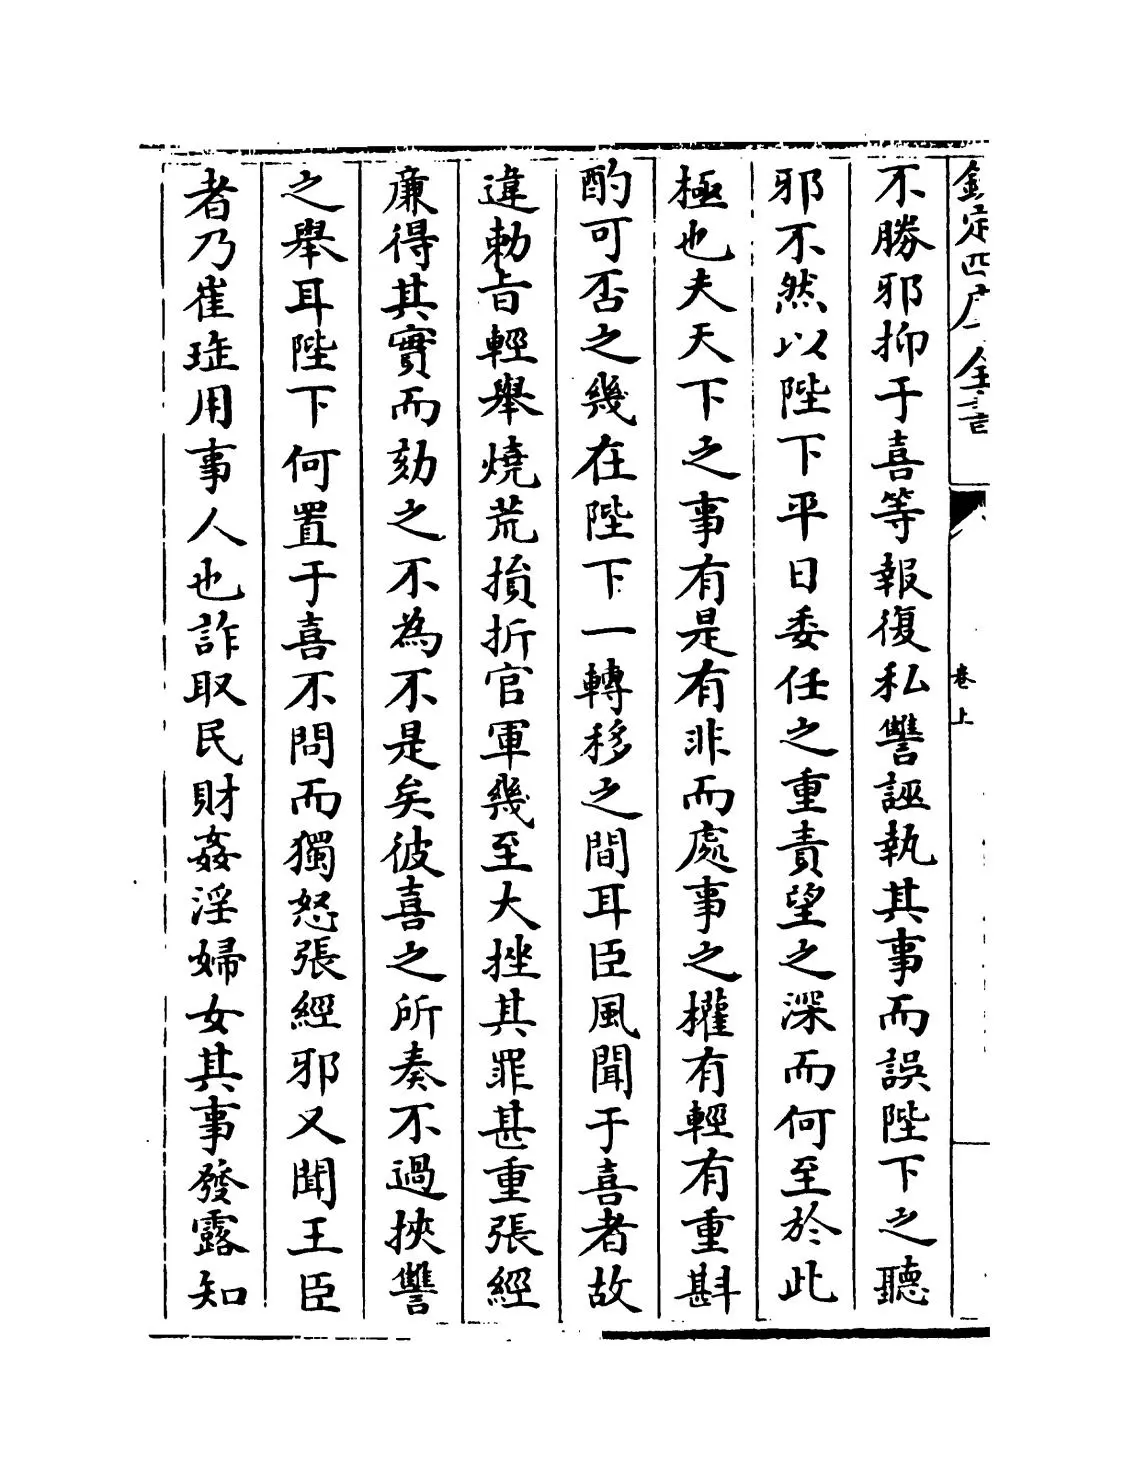 欽定四庫全書
卷上
不勝邪抑于喜等報復私讐誣執其事而誤陛下之聽
邪不然以陛下平日委任之重責望之深而何至於此
極也夫天下之事有是有非而處事之權有輕有重斟
酌可否之幾在陛下一轉移之間耳臣風聞于喜者故
違勅旨輕舉燒荒損折官軍幾至大挫其罪甚重張經
廉得其實而劾之不為不是矣彼喜之所奏不過挾讐
之舉耳陛下何置于喜不問而獨怒張經邪又聞王臣
者乃崔㻮用事人也詐取民財姦淫婦女其事發露知